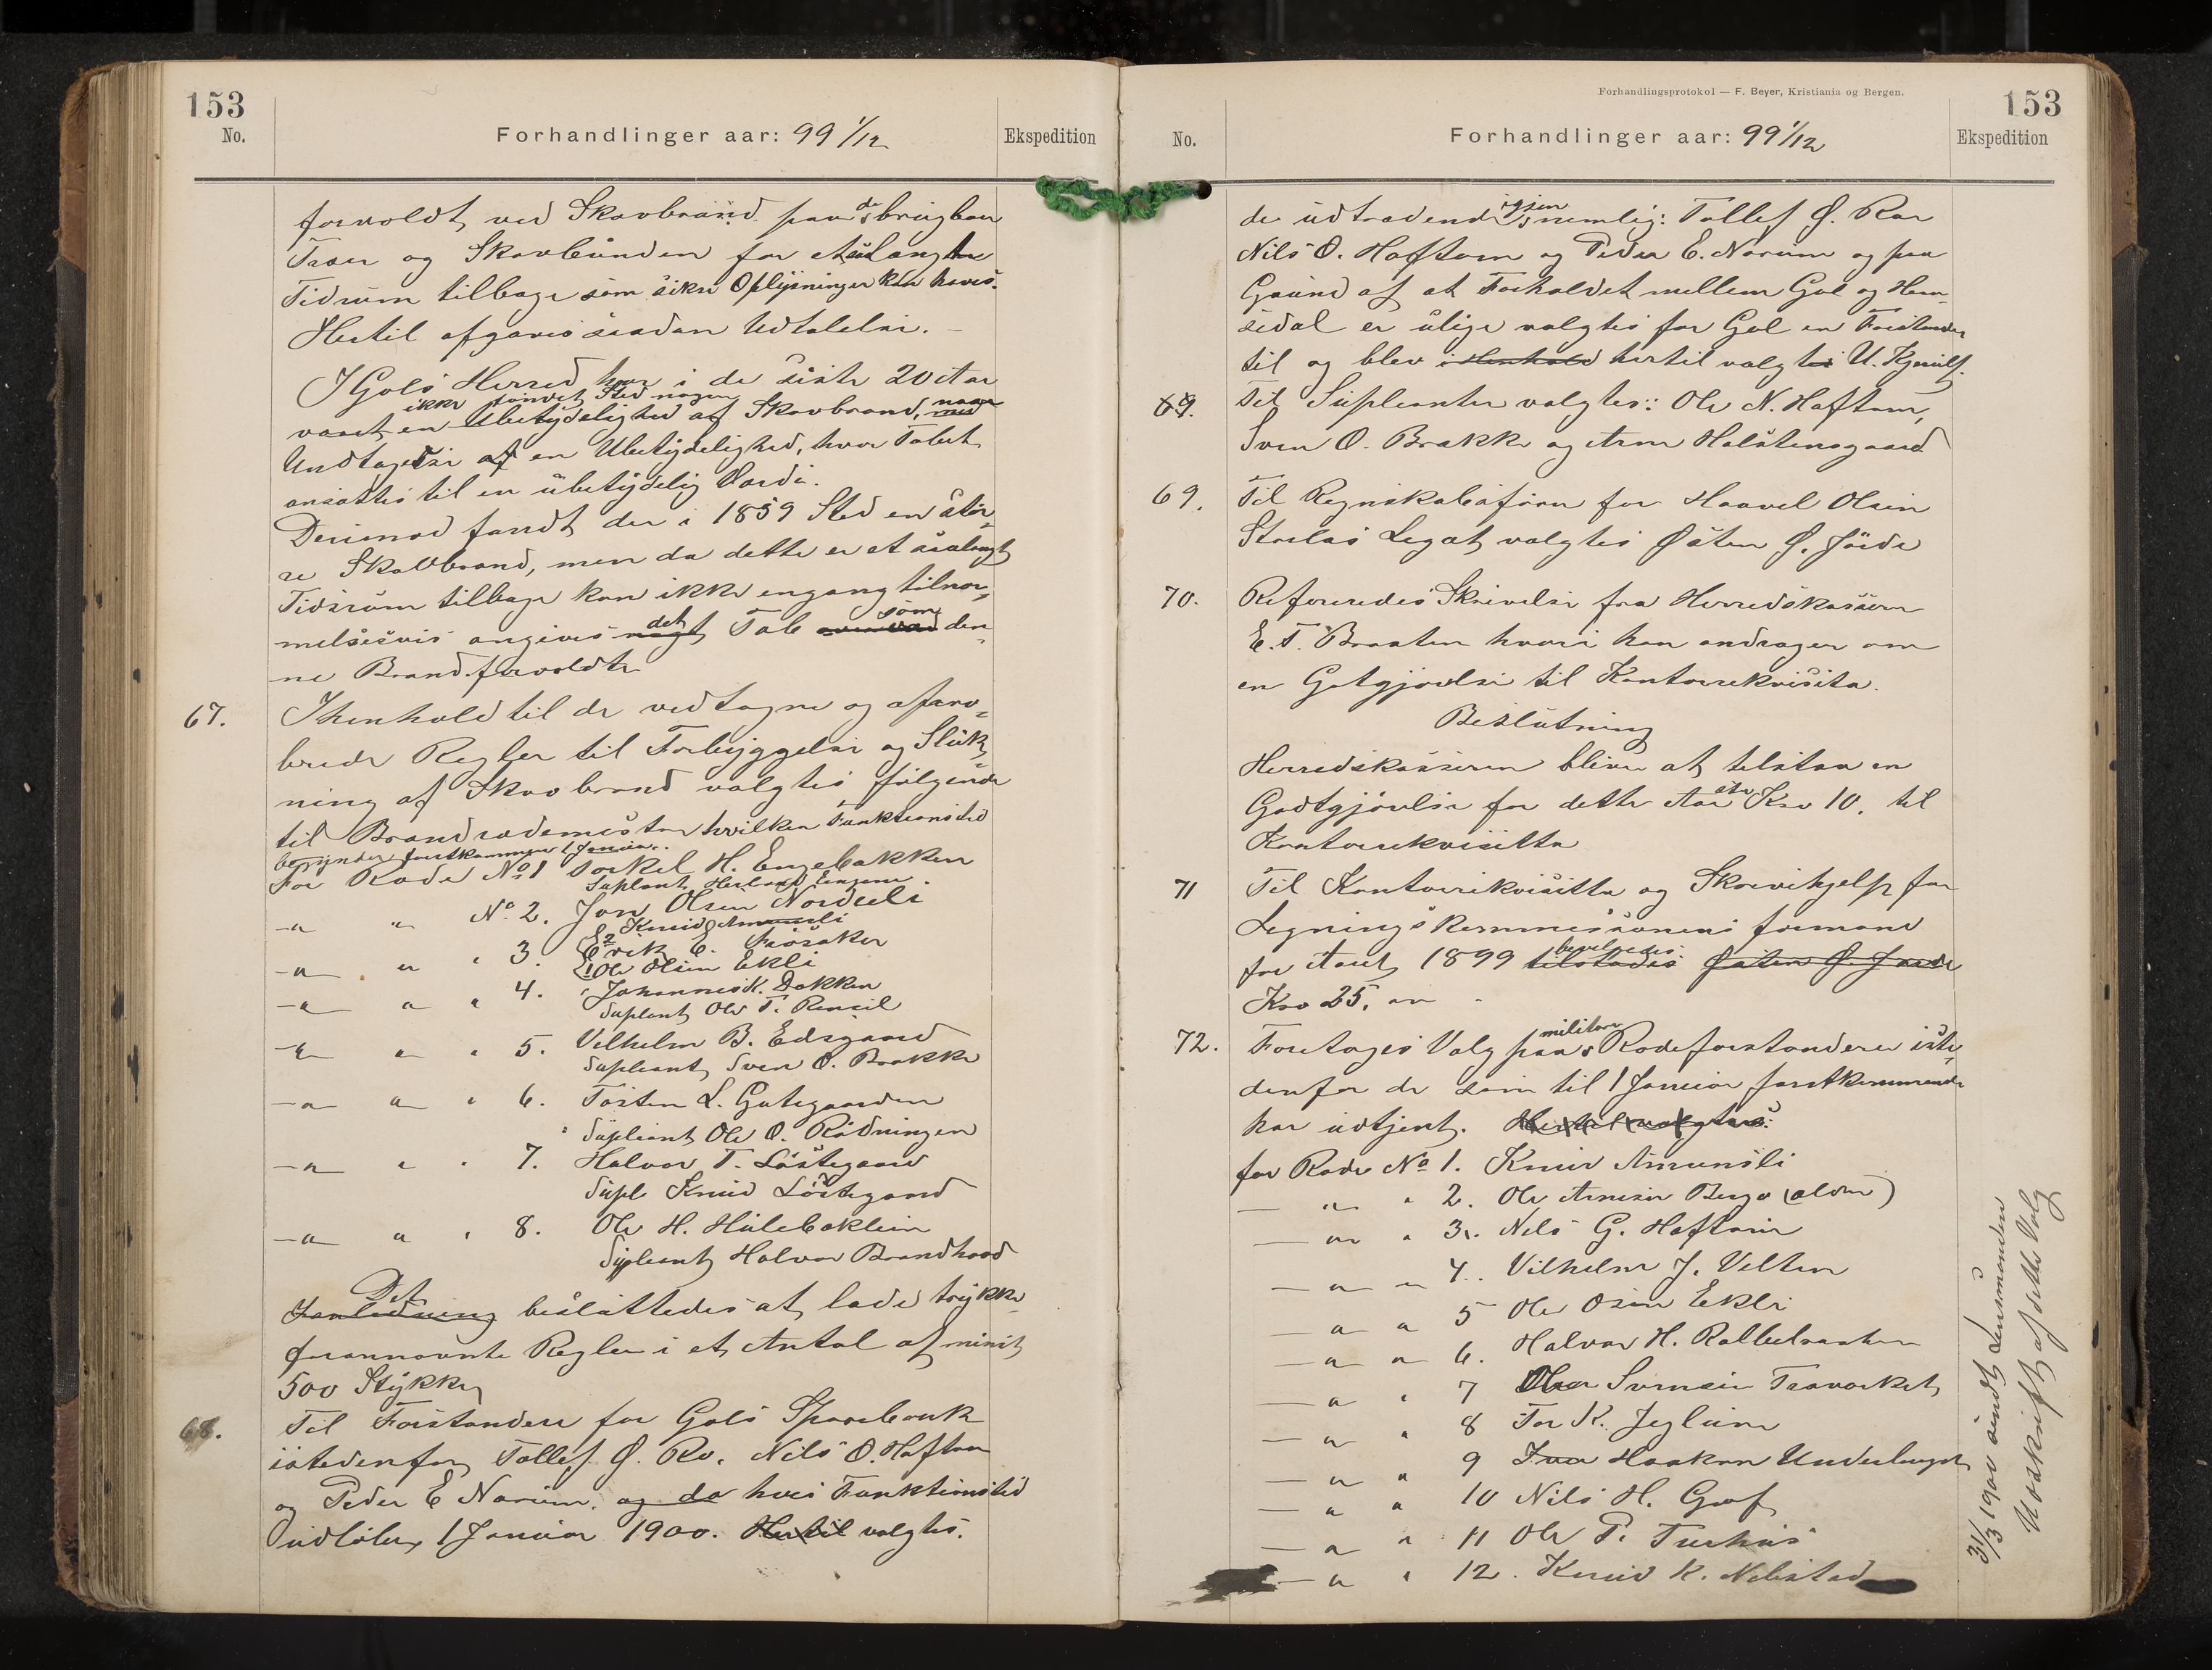 153
No.
Forhandlinger aar: 99 1/12
Ekspedition
forvoldt ved Skovbrand paa de brugbare
Træer og Skovbunden for et saalangt
Tidsrum tilbage som sikre Oplysninger kan haves.
Hertil afgaves saadan Udtalelse. –
I Gols Herred har i de siste 20 Aar
ikke fundet Sted nogen
været en Ubetydelighed af Skovbrand, naar
Undtages af en Ubetydelighed, hvor Tabet
ansattes til en ubetydelig Værdi.
Derimod fandt der i 1859 Sted en stør-
re Skovbrand, men da dette er et saalangt
Tidsrum tilbage kan ikke engang tilnær-
melsesvis angives det Tab som den-
ne Brand forvoldte
67. I henhold til de vedtagne og appro-
berede Regler til Forbyggelse og Sluk-
ning af Skovbrand valgtes følgende
til Brandrodemestre hvilken Funktionstid
begynder førstkommende 1 Januar.
For Rode No 1 Torkel H. Engebakken
Supleant Herbrand Engene
-"- " No. 2. Jon Olsen Nordreli
Knud Amunsli
-"- " " 3. 2 Erik E. Frøsaker
1 Ole Olsen Ekli
-"- " " 4. Johannes K. Dokken
Supleant Ole T. Rensel
-"- " " 5. Vilhelm B. Eidsgaard
Supleant Sven O. Brakke
-"- " " 6. Tosten L. Gutegaarden
Supleant Ole O. Rødningen
-"- " " 7. Halvor T. Løstegaard
Supl Knud Løstegaard
-"- " " 8. Ole H. Hulebakken
Supleant Halvor Brandhovd
Det
Foranledning besluttedes at lade trykke
forannævnte Regler i et Antal af minst
500 Stykker
68. Til Forstandere for Gols Sparebank
istedenfor Tollef Ø. Ro, Nils O. Haftorn
og Peder E Narum, og da hvis Funktionstid
udløber 1 Januar 1900. Hertil valgtes.
Forhandlingsprotokol — F. Beyer, Kristiania og Bergen.
153
No.
Forhandlinger aar: 99 1/12
Ekspedition
de udtrædende igjen nemlig: Tollef Ø. Roe
Nils O. Haftorn og Peder E. Narum og paa
Grund af at Forholdet mellem Gol og Hem-
sedal er ulige valgtes for Gol en Forstander
til og blev i Henhold hertil valgt U. Kjenulf.
69. Til Supleanter valgtes: Ole N. Haftorn,
Sven O. Brakke og Arne Halstensgaard
69. Til Regnskabsfører for Haavel Olsen
Storlas Legat valgtes Østen Ø. Jorde
70. Refereredes Skrivelse fra Herredskasseren
E. T. Braaten hvori han andrager om
en Gotgjørelse til Kontorrekvisita.
Beslutning
Herredskasseren bliver at tilstaa en
Godtgjørelse for dette Aar stor Kro 10. til
Kontorrekvisitta
71 Til Kontorrekvisitta og Skrivehjelp for
Ligningskommissionens formand
for Aaret 1899 tilstodes bevilgedes Østen Ø. Jorde
Kro 25.
72. Foretoges Valg paa militære Rodeforstandere iste-
denfor de som til 1 Januar førstkommende
har udtjent. Hertil valgtes:
for Rode No 1. Knud Amunsli
— " " 2. Ole Arnesen Bergo (ældre)
— " " 3. Nils G. Haftorn
— " " 4. Vilhelm J. Velten
— " " 5 Ole Osen Ekli
— " " 6. Halvor H. Rallelraaten
— " " 7 Ole Svensen Travarket
— " " 8 Tor K. Jeglum
— " " 9 Haakon Underberget
— " " 10 Nils H. Grøf
— " " 11 Ole P. Turhus
— " " 12. Knud K. Nibstad
31/3 1900 sendt Lensmanden
Udskrift af dette Valg